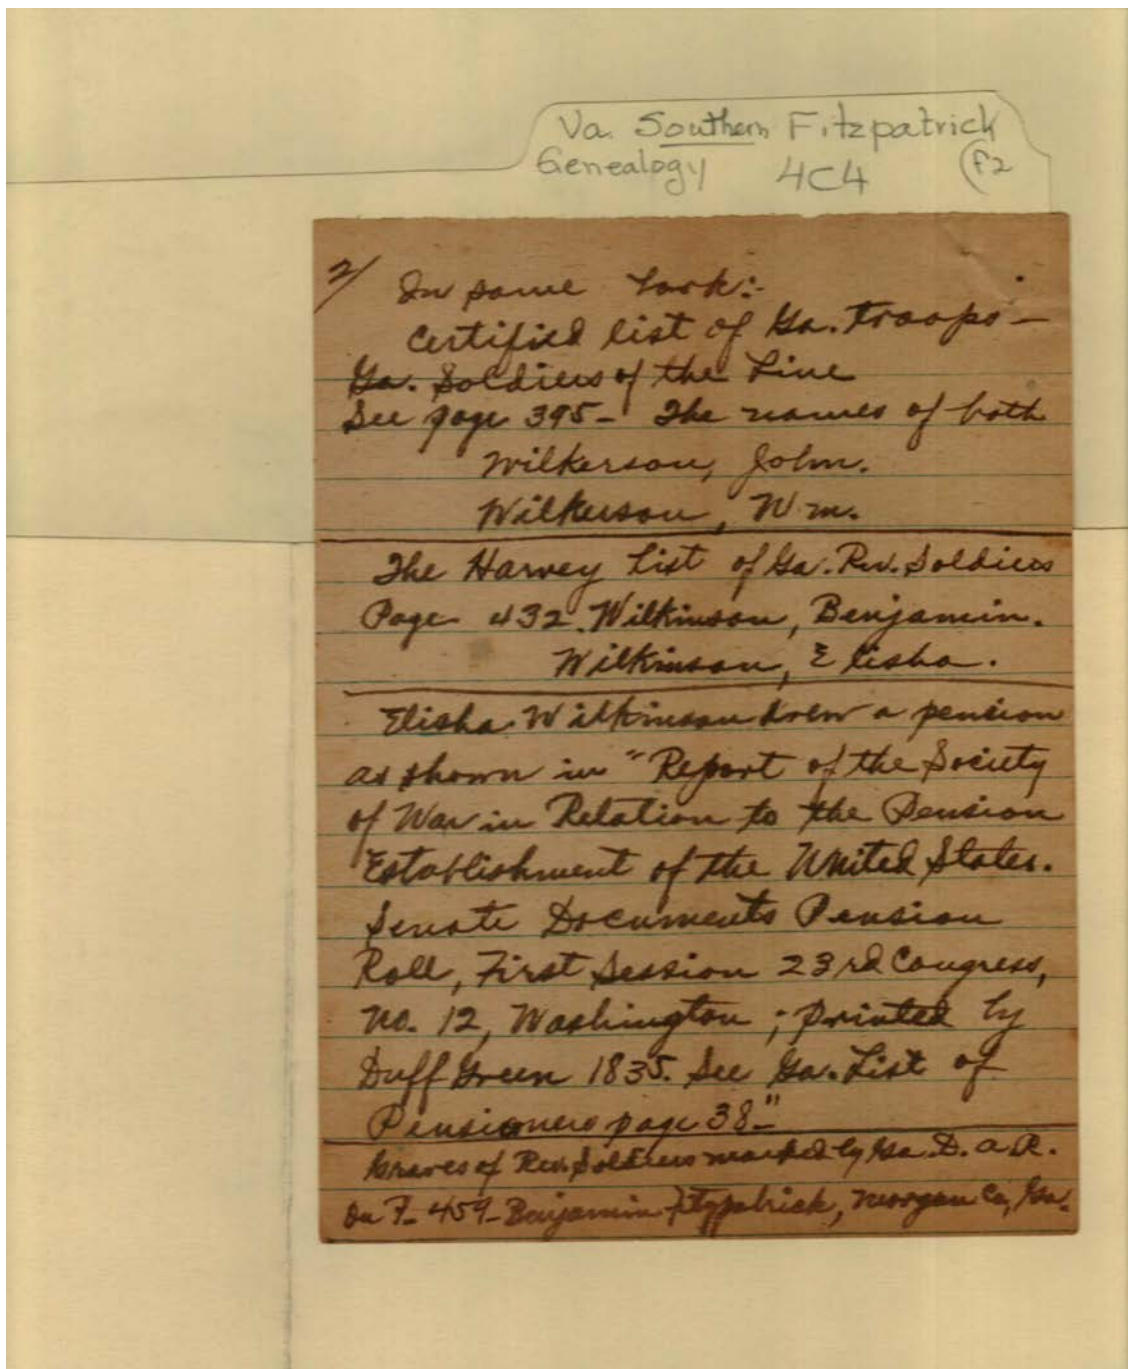 Va. Southern Fitzpatrick
Genealogy 4C4 (F2
2/ In same Work:-
Certified list of Ga. Troops -
Ga. Soldiers of the Line
See page 395 - The names of both
Wilkerson, John.
Wilkerson, Wm.
The Harvey List of Ga. Rev. Soldiers
Page 432. Wilkinson, Benjamin.
Wilkinson, Elisha.
Elisha Wilkinson drew a pension
as shown in "Report of the Society
of War in Relation to the Pension
Establishment of the United States.
Senate Documents Pension
Roll, First Session 23rd Congress,
No. 12, Washington; printed by
Duff Green 1835. See Ga. List of
Pensioners page 38-"
Graves of Rev. Soldiers marked by Ga. D. A. R.
On P- 459- Benjamin Fitzpatrick, Morgan Co, Ga.